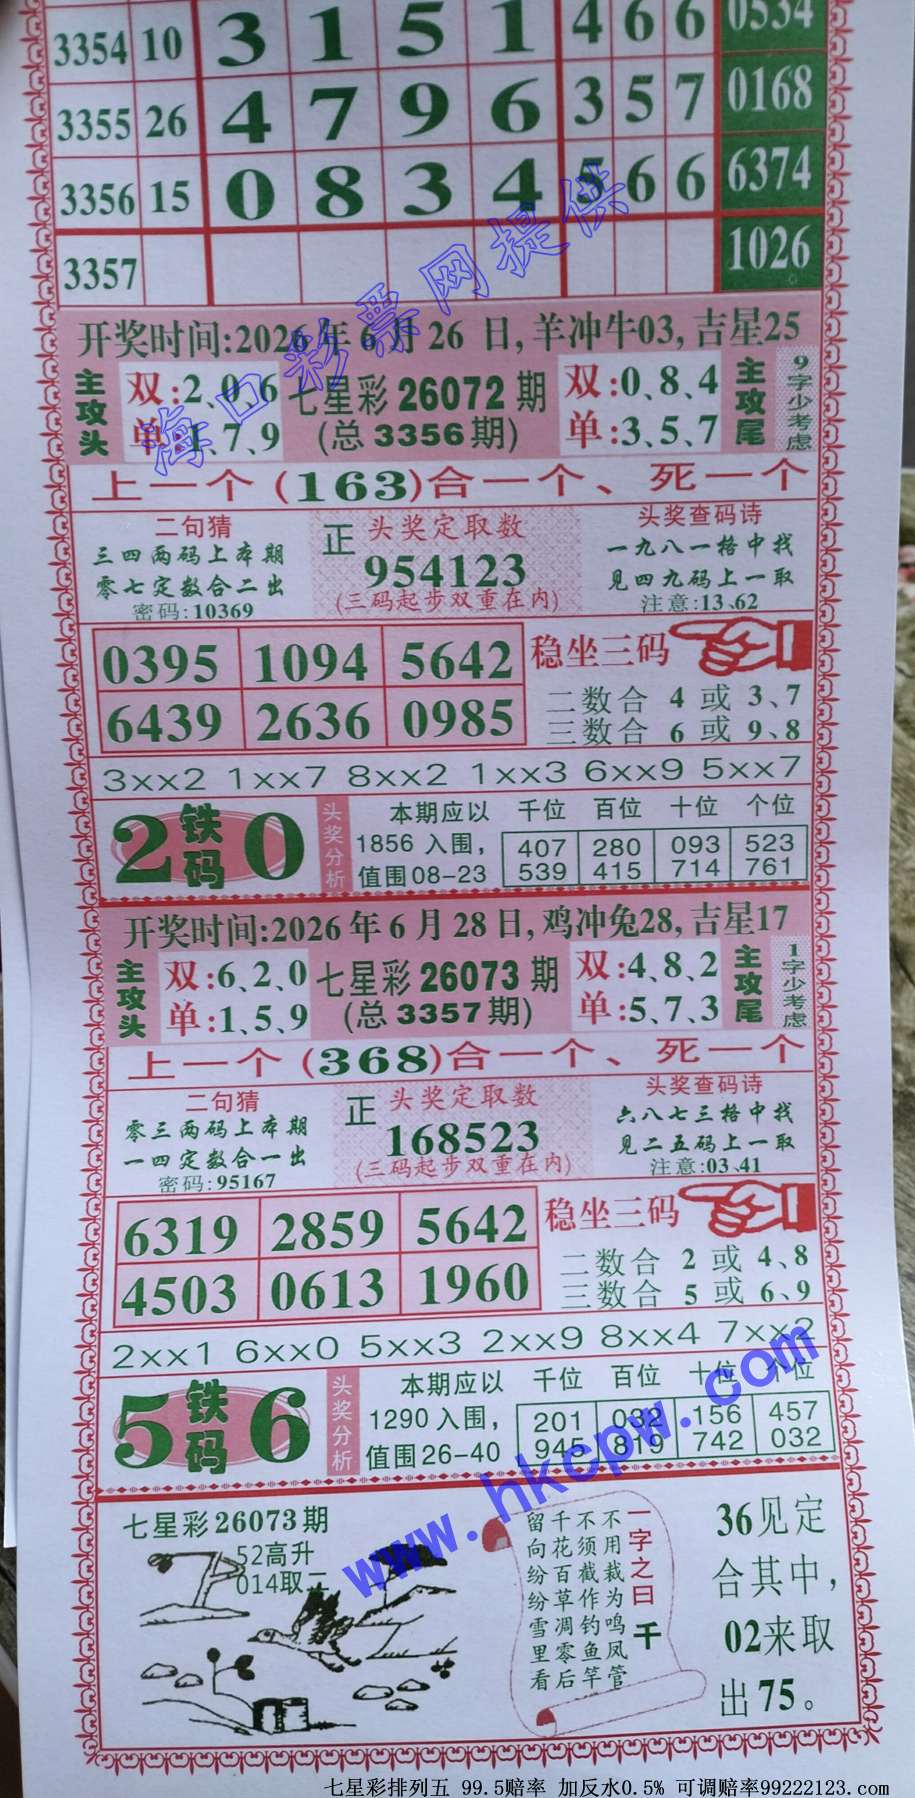 3354 10 3 1 5 1 4 6 6 0534
3355 26 4 7 9 6 3 5 7 0168
3356 15 0 8 3 4 5 6 6 6374
3357 1026
海口彩票网提供
开奖时间:2026年6月26日,羊冲牛03,吉星25
主攻头
双:2、0、6
单:1、7、9
七星彩26072期
(总3356期)
双:0、8、4
单:3、5、7
主攻尾
9字少考虑
上一个(163)合一个、死一个
二句猜
三四两码上本期
零七定数合二出
密码:10369
正 头奖定取数
954123
(三码起步双重在内)
头奖查码诗
一九八一格中找
见四九码上一取
注意:13、62
0395 1094 5642
6439 2636 0985
稳坐三码
二数合 4 或 3、7
三数合 6 或 9、8
3xx2 1xx7 8xx2 1xx3 6xx9 5xx7
2 铁码 0
头奖分析
本期应以
1856入围,
值围08-23
千位 百位 十位 个位
407 280 093 523
539 415 714 761
开奖时间:2026年6月28日,鸡冲兔28,吉星17
主攻头
双:6、2、0
单:1、5、9
七星彩26073期
(总3357期)
双:4、8、2
单:5、7、3
主攻尾
1字少考虑
上一个(368)合一个、死一个
二句猜
零三两码上本期
一四定数合一出
密码:95167
正 头奖定取数
168523
(三码起步双重在内)
头奖查码诗
六八七三格中找
见二五码上一取
注意:03、41
6319 2859 5642
4503 0613 1960
稳坐三码
二数合 2 或 4、8
三数合 5 或 6、9
2xx1 6xx0 5xx3 2xx9 8xx4 7xx2
5 铁码 6
头奖分析
本期应以
1290入围,
值围26-40
千位 百位 十位 个位
201 032 156 457
945 819 742 032
www.hkcpw.com
七星彩26073期
52高升
014取二
一字之曰 千
不用裁为鸣凤管
不须截作钓鱼竿
千花百草凋零后
留向纷纷雪里看
36见定
合其中,
02来取
出75。
七星彩排列五 99.5赔率 加反水0.5% 可调赔率99222123.com